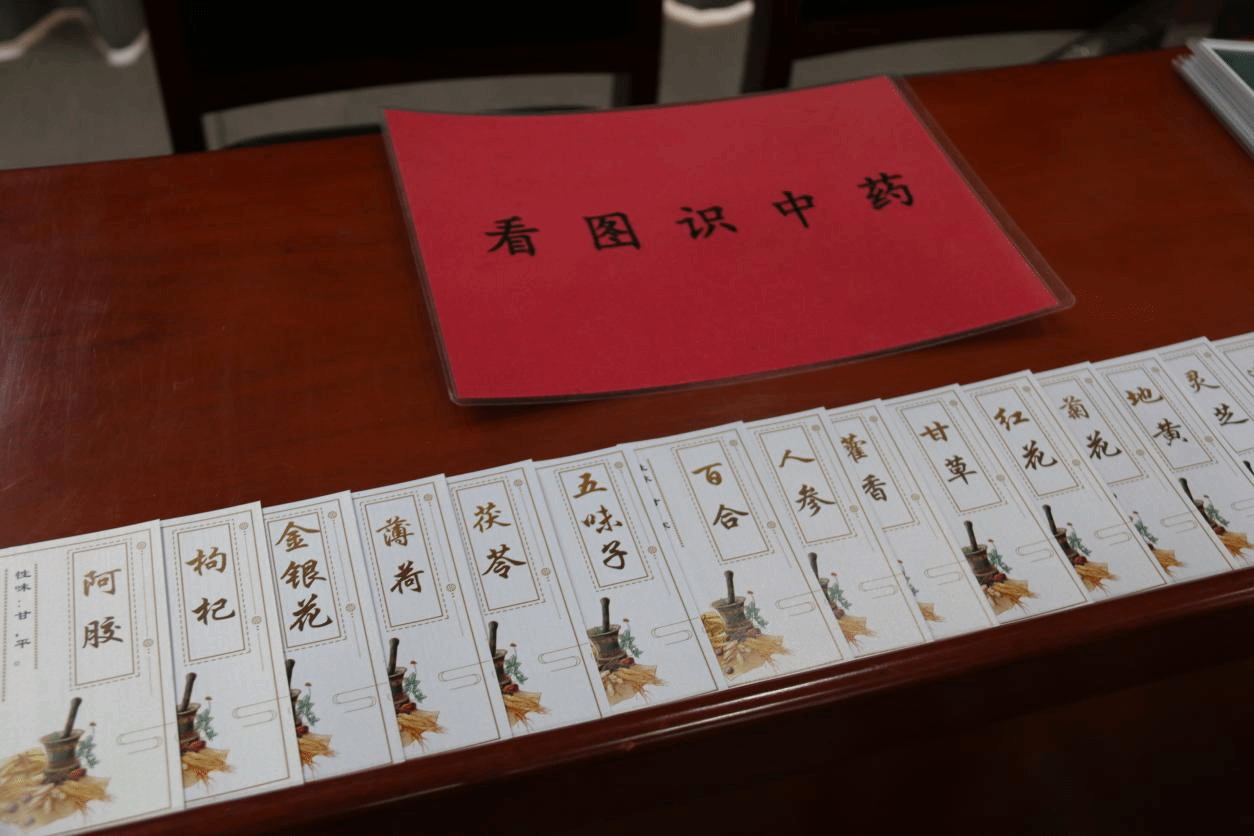 看图识中药
阿胶
性味：甘，平。
枸杞
金银花
薄荷
茯苓
五味子
百合
人参
藿香
甘草
红花
菊花
地黄
灵芝